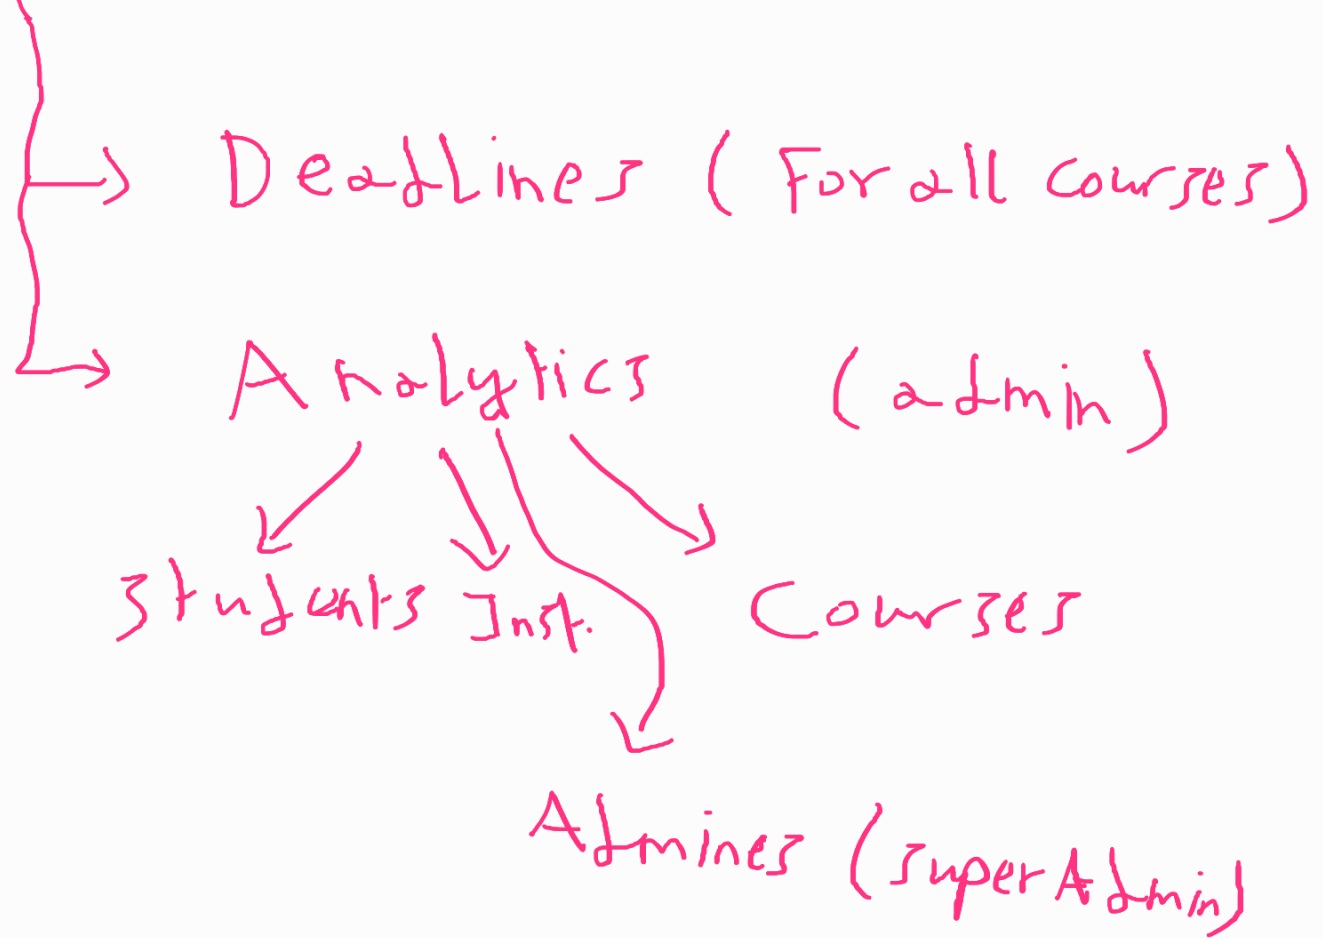 Deadlines (For all courses)
Analytics (admin)
students Inst. Courses
Admines (superAdmin)